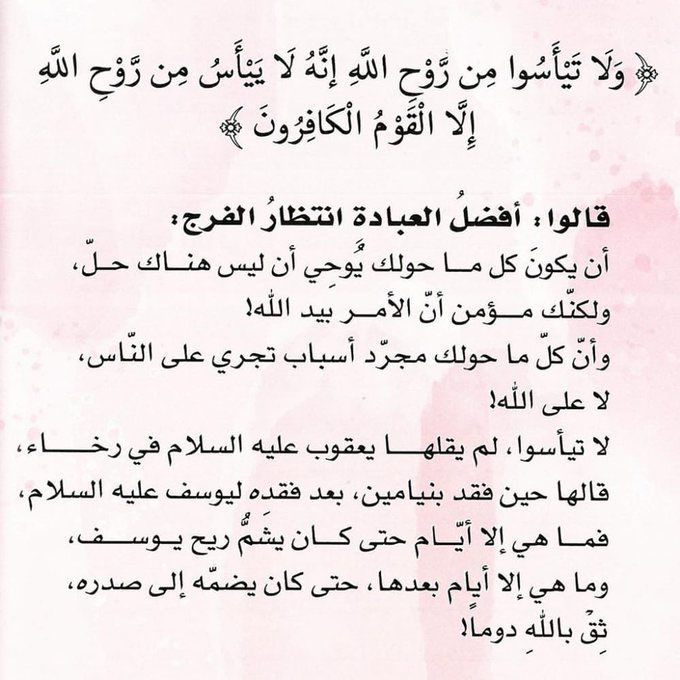 ﴿ وَلَا تَيْأَسُوا مِن رَّوْحِ اللَّهِ إِنَّهُ لَا يَيْأَسُ مِن رَّوْحِ اللَّهِ
إِلَّا الْقَوْمُ الْكَافِرُونَ ﴾
قالوا: أفضلُ العبادةِ انتظارُ الفرج:
أن يكونَ كل ما حولك يُوحِي أن ليس هناك حلّ،
ولكنّك مؤمن أنّ الأمر بيد الله!
وأنّ كلّ ما حولك مجرّد أسباب تجري على النّاس،
لا على الله!
لا تيأسوا، لم يقلها يعقوب عليه السلام في رخاء،
قالها حين فقد بنيامين، بعد فقدِه ليوسف عليه السلام،
فما هي إلا أيّام حتى كان يشمُّ ريح يوسف،
وما هي إلا أيام بعدها، حتى كان يضمّه إلى صدره،
ثِقْ باللهِ دوماً!